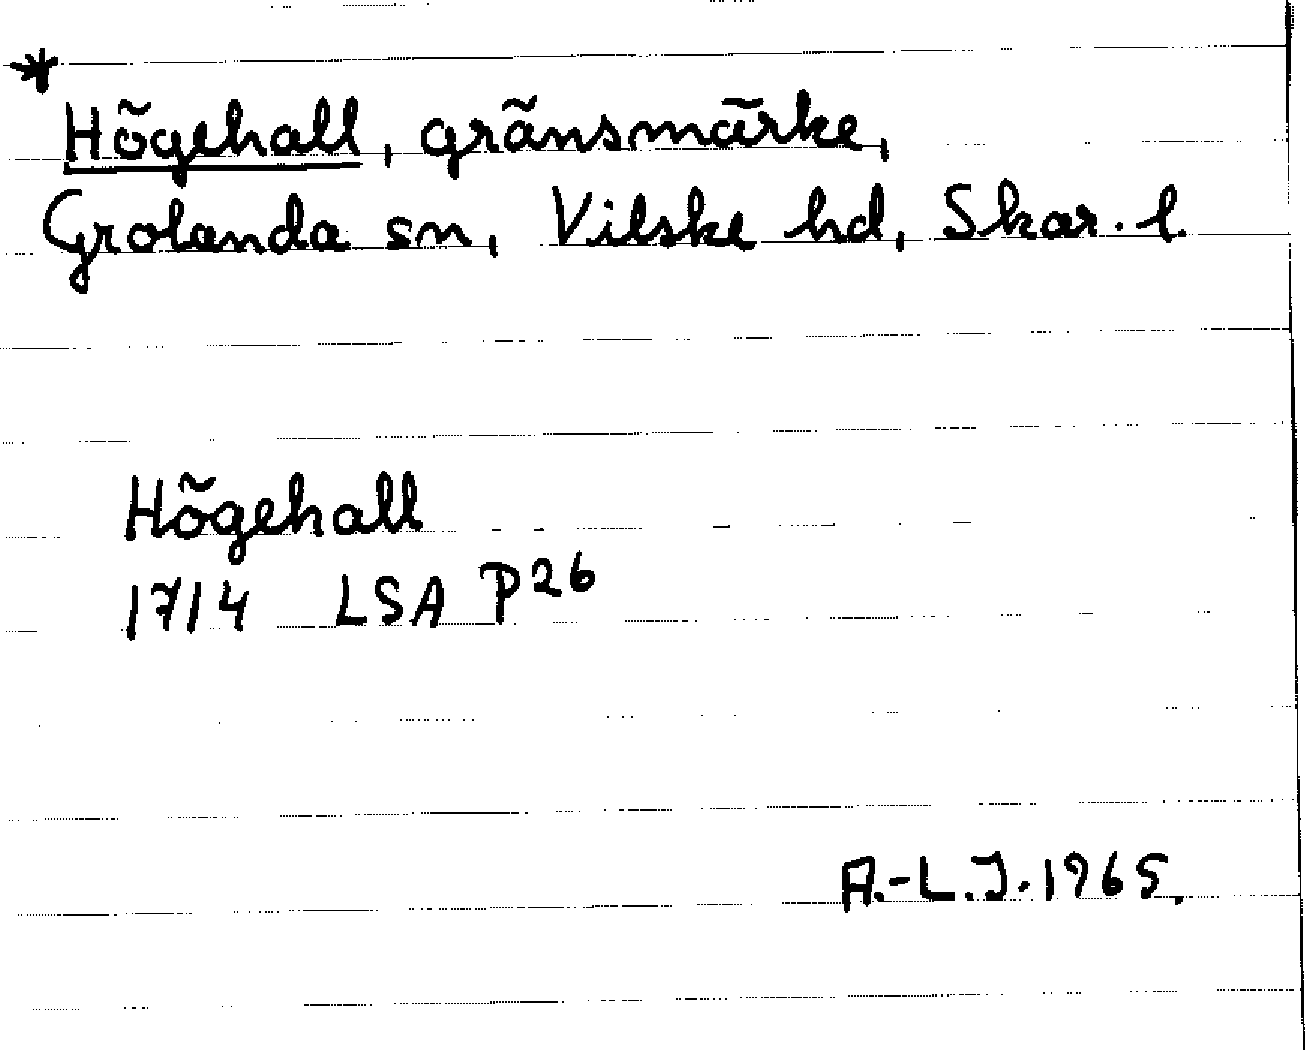 *
Högehall, gränsmärke,
Grolanda sn, Vilske hd, Skar. l.
Högehall
1714 LSA P26
A.-L.J. 1965.